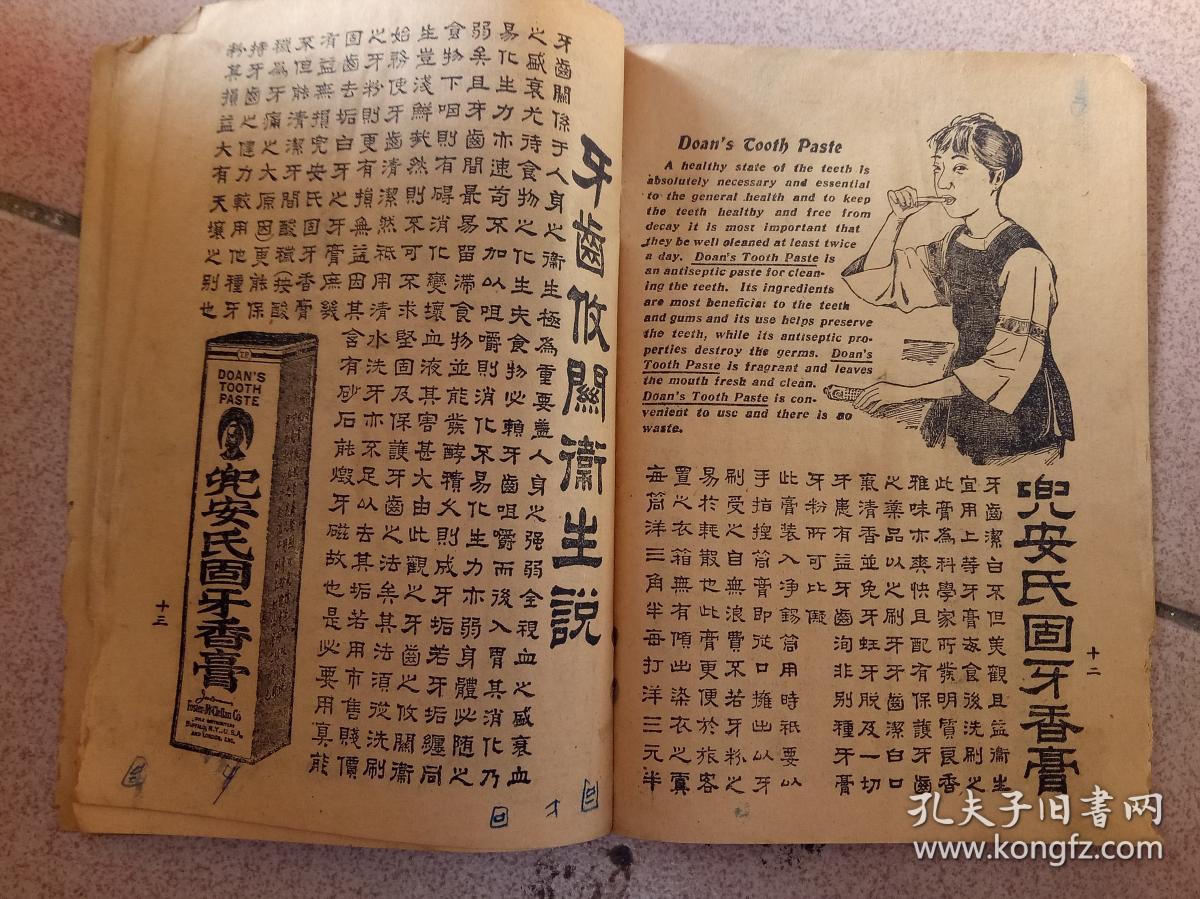 兜安氏固牙香膏
十二
Doan's Tooth Paste
A healthy state of the teeth is
absolutely necessary and essential
to the general health and to keep
the teeth healthy and free from
decay it is most important that
they be well cleaned at least twice
a day. Doan's Tooth Paste is
an antiseptic paste for clean-
ing the teeth. Its ingredients
are most beneficial to the teeth
and gums and its use helps preserve
the teeth, while its antiseptic pro-
perties destroy the germs. Doan's
Tooth Paste is fragrant and leaves
the mouth fresh and clean.
Doan's Tooth Paste is con-
venient to use and there is no
waste.
牙齒潔白不但美觀且益衛生
宜用上等牙膏每食後洗刷之
此膏為科學家所發明質良香
雅味亦爽快且配有保護牙齒
之藥品以之刷牙牙齒潔白口
氣清香並免牙蛀牙脫及一切
牙患有益牙齒洵非別種牙膏
牙粉所可比儗
此膏裝入净錫筒用時祇要以
手指揑筒膏即從口擁出以牙
刷受之自無浪費不若牙粉之
易於耗散也此膏更便於旅客
置之衣箱無有傾出染衣之虞
每筒洋三角半每打洋三元半
牙齒攸關衛生說
牙齒關係于人身之衛生極為重要蓋人身之强弱全視血之盛衰血
之盛衰尤待食物之化生夫食物必賴牙齒咀嚼而後入胃其消化乃
易化生力亦速苟不加以咀嚼則消化不易化生力亦弱身體必隨之
弱矣且牙齒間最易留滯食物並能發酵積久則成牙垢若牙垢纏同
食物下咽則有碍消化變壞血液其害甚大由此觀之牙齒之攸關衛
生豈淺鮮哉然則不可不求堅固及保護牙齒之法矣其法須從洗刷
始務使牙齒清潔然祇用清水洗牙亦不足以去其垢若用市售賤價
之牙粉則更有損無益因其含有砂石能燬牙磁故也是必要用真能
固齒去垢白牙之牙膏庶幾
有益無損兜安氏固牙香膏
不但能清潔牙間酸穢(按酸
穢為牙痛之大原因更能保
持牙齒之健力較用他種牙
粉其損益大有天壤之別也
十三
DOAN'S
TOOTH
PASTE
兜安氏固牙香膏
Foster-McClellan Co
BUFFALO, N.Y., U.S.A.
AND LONDON, ENG.
孔夫子旧书网
www.kongfz.com